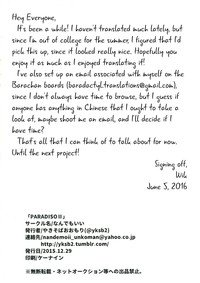 Hey Everyone,
It's been a while! I haven't translated much lately, but
since I'm out of college for the summer, I figured I'd
pick this up, since it looked really nice. Hopefully you
enjoy it as much as I enjoyed translating it!
I've also set up an email associated with myself on the
Barachan boards (baradactyl.translations@gmail.com),
since I don't always have time to browse, but I guess if
anyone has anything in Chinese that I ought to take a
look at, maybe shoot me an email, and I'll decide if I
have time?
That's all that I can think of to talk about for now.
Until the next project!
Signing off,
Wib
June 5, 2016
『PARADISO II』
サークル名/なんでもいい
発行者/やきそばおおもり(@yksb2)
連絡先/nandemoii_unkoman@yahoo.co.jp
http://yksb2.tumblr.com/
発行日/2015.12.29
印刷/ケーナイン
※無断転載・ネットオークション等への出品禁止。